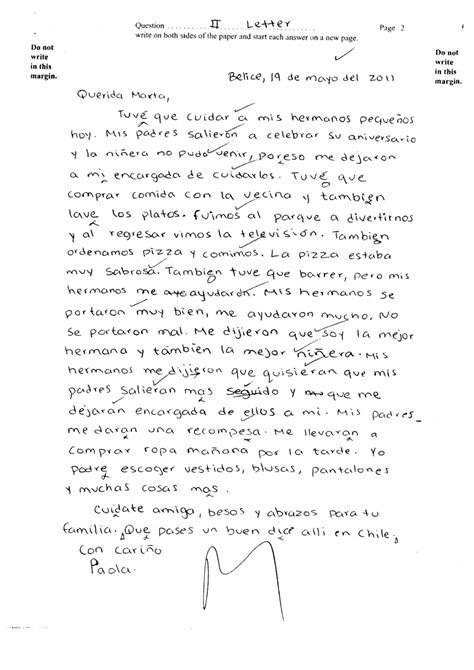 Question II Letter Page 2
write on both sides of the paper and start each answer on a new page.
Do not
write
in this
margin.
Do not
write
in this
margin.
Belice, 19 de mayo del 2011
Querida Marta,
Tuvé que cuidar a mis hermanos pequeños
hoy. Mis padres salierón a celebrar su aniversario
y la niñera no pudo venir, poreso me dejaron
a mi encargada de cuidarlos. Tuvé que
comprar comida con la vecina y tambien
lave los platos. fuimos al parque a divertirnos
y al regresar vimos la televisión. Tambien
ordenamos pizza y comimos. La pizza estaba
muy sabrosa. Tambien tuve que barrer, pero mis
hermanos me ayudarón. Mis hermanos se
portaron muy bien, me ayudaron mucho. No
se portaron mal. Me dijieron que soy la mejor
hermana y también la mejor niñera. Mis
hermanos me dijieron que quisieran que mis
padres salieran mas seguido y que me
dejaran encargada de ellos a mi. Mis padres
me daran una recompesa. Me llevaran a
comprar ropa mañana por la tarde. Yo
padre escoger vestidos, blusas, pantalones
y muchas cosas mas.
Cuidate amiga, besos y abrazos para tu
familia. Que pases un buen dice alli en Chile.
Con cariño
Paola.